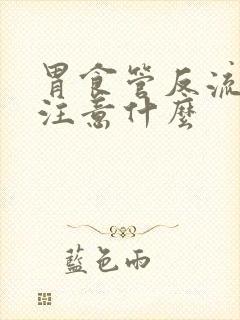 胃食管反流
注意什麼
藍色雨